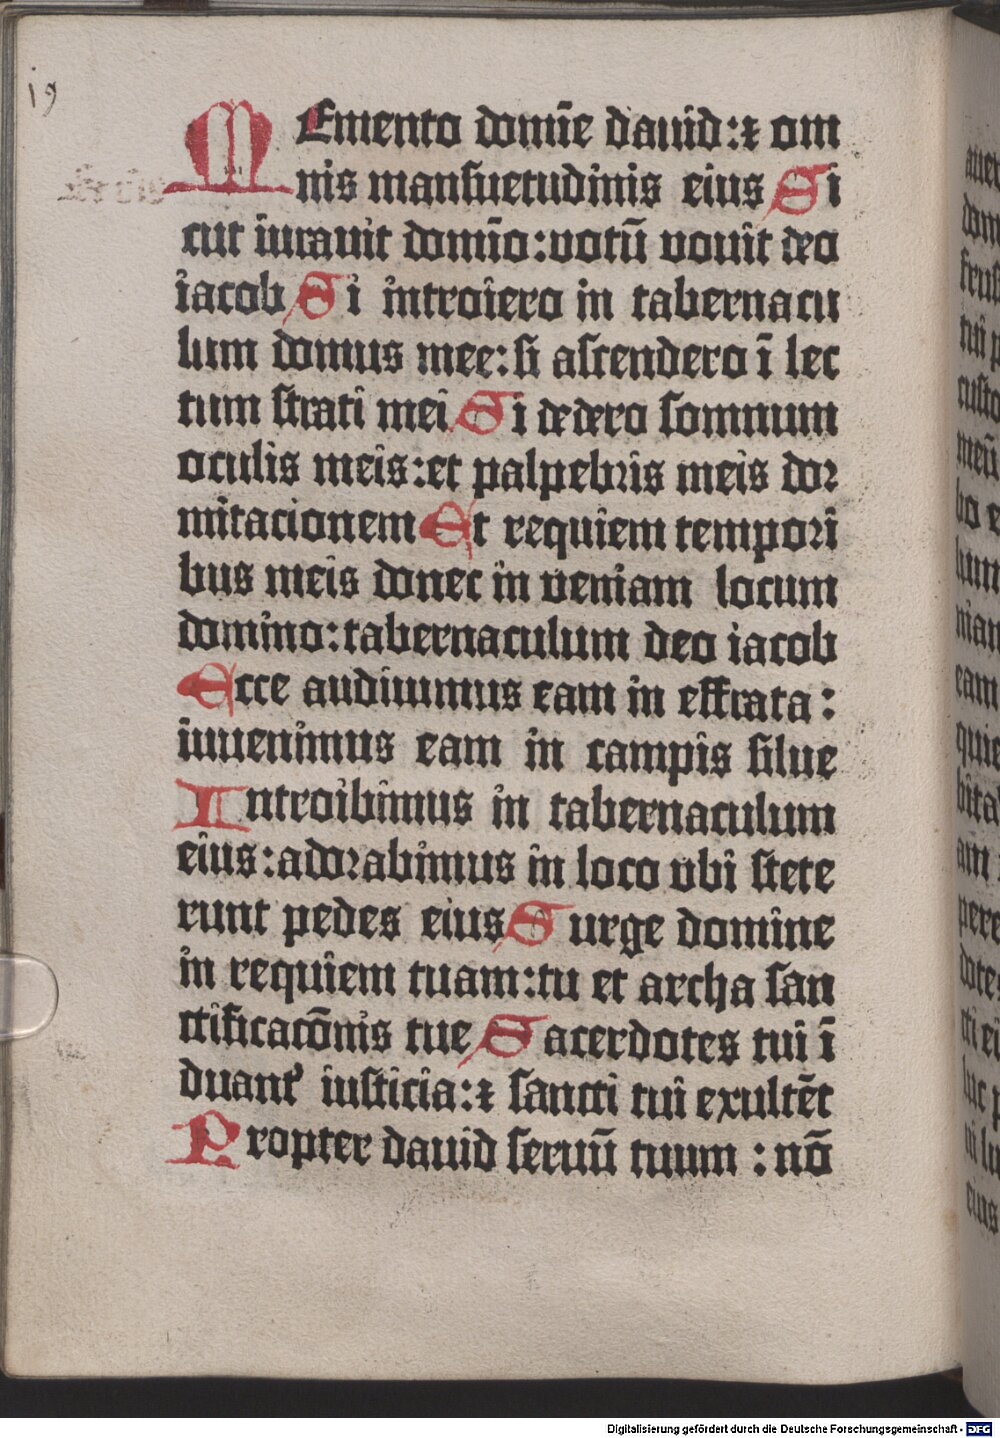 19
MEmento domīe dauid:⁊ om
nis mansuetudinis eius Si
cut iurauit domīo:uotū uouit deo
iacob Si introiero in tabernacu
lum domus mee:si ascendero ī lec
tum strati mei Si dedero somnum
oculis meis:et palpebris meis dor
mitacionem Et requiem tempori
bus meis donec in ueniam locum
domino:tabernaculum deo iacob
Ecce audiuimus eam in effrata:
inuenimus eam in campis silue
Introibimus in tabernaculum
eius:adorabimus in loco vbi stete
runt pedes eius Surge domine
in requiem tuam:tu et archa san
ctificacōnis tue Sacerdotes tui ī
duant᷑ iusticia:⁊ sancti tui exultēt
Propter dauid seruū tuum : nō
Digitalisierung gefördert durch die Deutsche Forschungsgemeinschaft - DFG